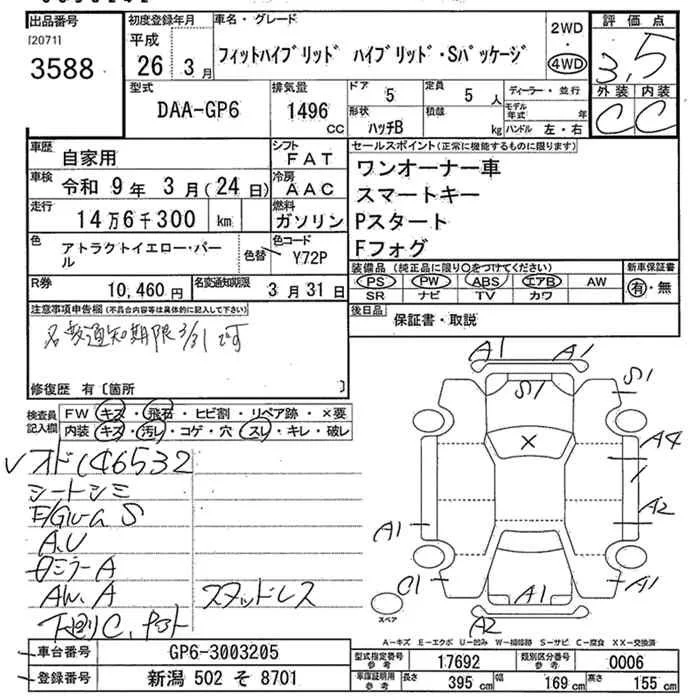 出品番号
[2071]
3588
初度登録年月
平成
26年 3月
車名・グレード
フィットハイブリッド ハイブリッド・Sパッケージ
2WD
・
4WD
評価点
3.5
外装 内装
C C
型式
DAA-GP6
排気量
1496
CC
ドア
5
定員
5 人
形状
ハッチB
積載
kg
ディーラー・並行
モデル年式 年
ハンドル 左・右
車歴
自家用
シフト
FAT
車検
令和 9年 3月(24日)
冷房
AAC
走行
14万6千300 km
燃料
ガソリン
色
アトラクトイエロー・パール
色替
色コード
Y72P
R券
10,460円
名変通知期限
3月31日
セールスポイント(正常に機能するものに限ります)
ワンオーナー車
スマートキー
Pスタート
Fフォグ
装備品 (純正品に限り○をつけてください)
PS PW ABS エアB AW
SR ナビ TV カワ
新車保証書
有・無
後日品
保証書・取説
注意事項申告欄(不具合内容等は具体的に記入して下さい)
名変通知期限3/31迄可
修復歴 有〔箇所 〕
検査員記入欄
FW キズ・飛石・ヒビ割・リペア跡・×要
内装 キズ・汚レ・コゲ・穴・スレ・キレ・破レ
オド146532
シートシミ
A.U
ミラーA
AW.A
スタッドレス
下廻りC,
A1 A1
S1
S1
×
A4
A2
A1
C1
A1
A1
A2
スペア
A-キズ E-エクボ U-凹み W-補修跡 S-サビ C-腐食 XX-交換済
車台番号
GP6-3003205
登録番号
新潟 502 そ 8701
型式指定番号
参考
17692
類別区分番号
参考
0006
車庫証明用
参考
長さ 395 cm
幅 169 cm
高さ 155 cm